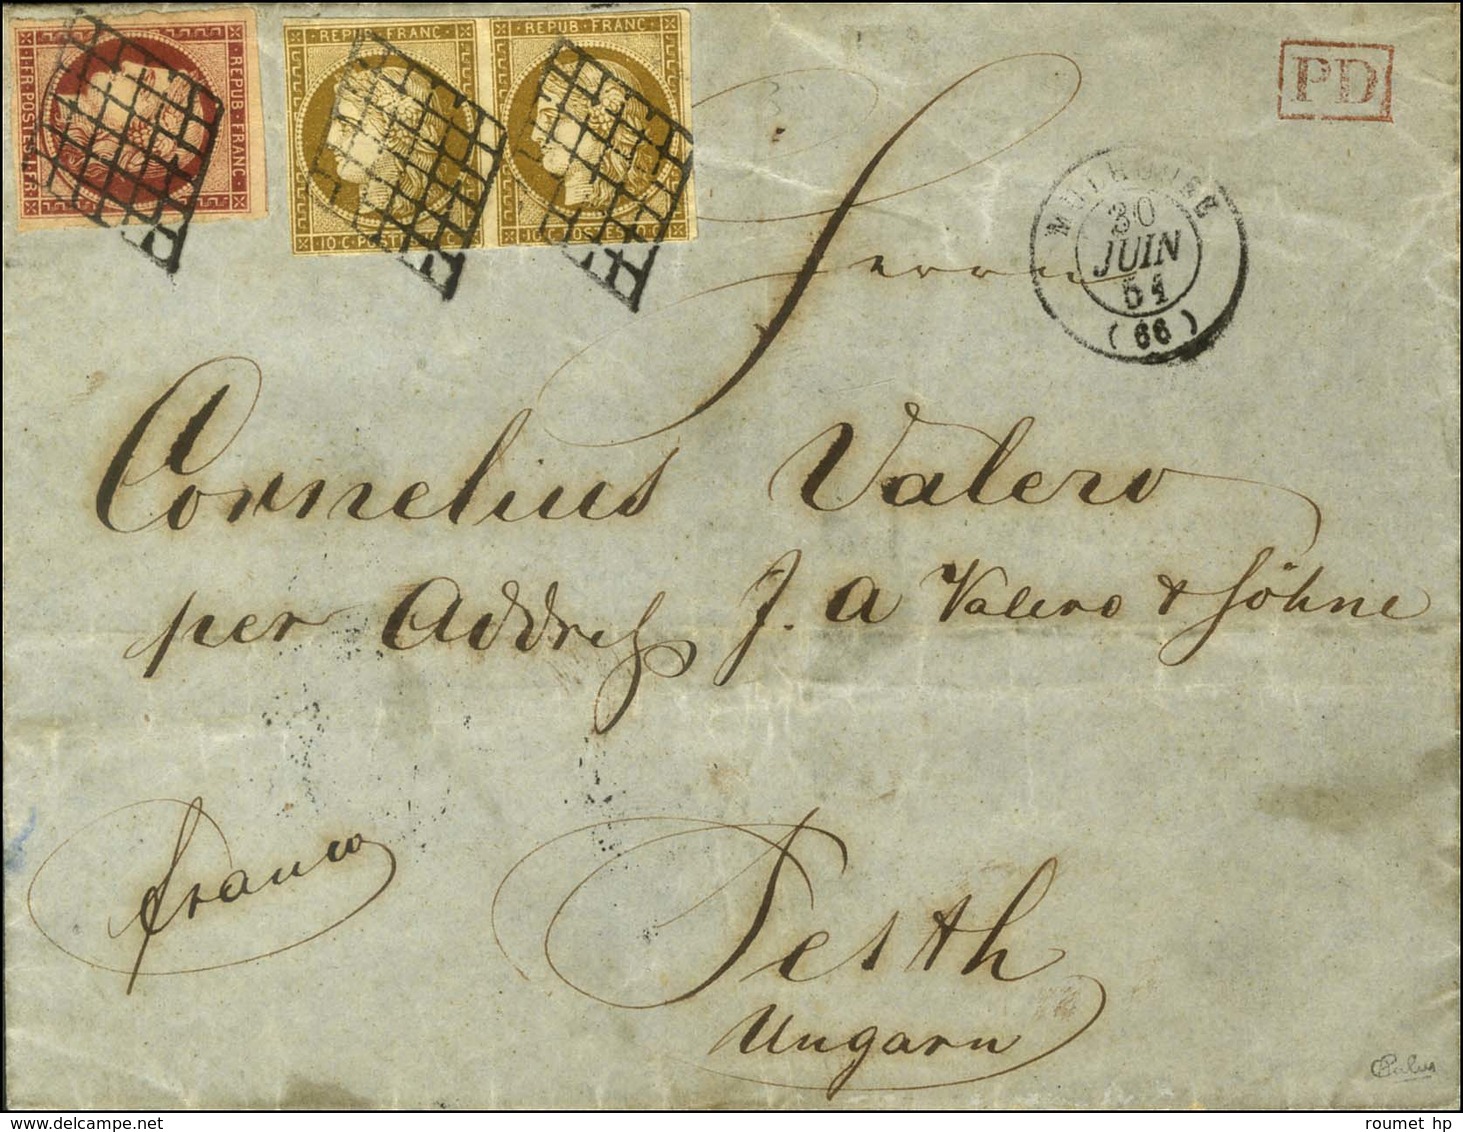 REPUB. FRANC.
1.FR.POSTES.1.FR
REPUB. FRANC.
10.C.POSTES.10.C
REPUB. FRANC.
10.C.POSTES.10.C
PD
MULHOUSE
30
JUIN
51
(66)
Herrn
Cornelius Valero
per Addreß J. A Valero & Söhne
franco
Pesth
Ungarn
Calves
roumet hp